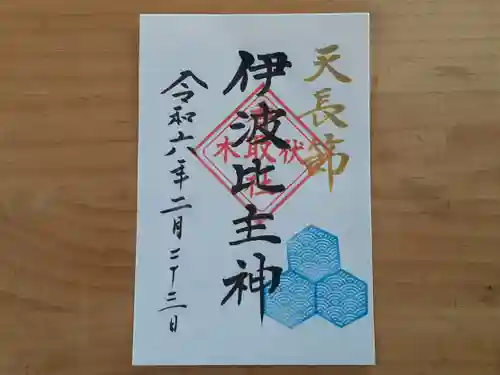 天長節
伊波比主神
令和六年二月二十三日